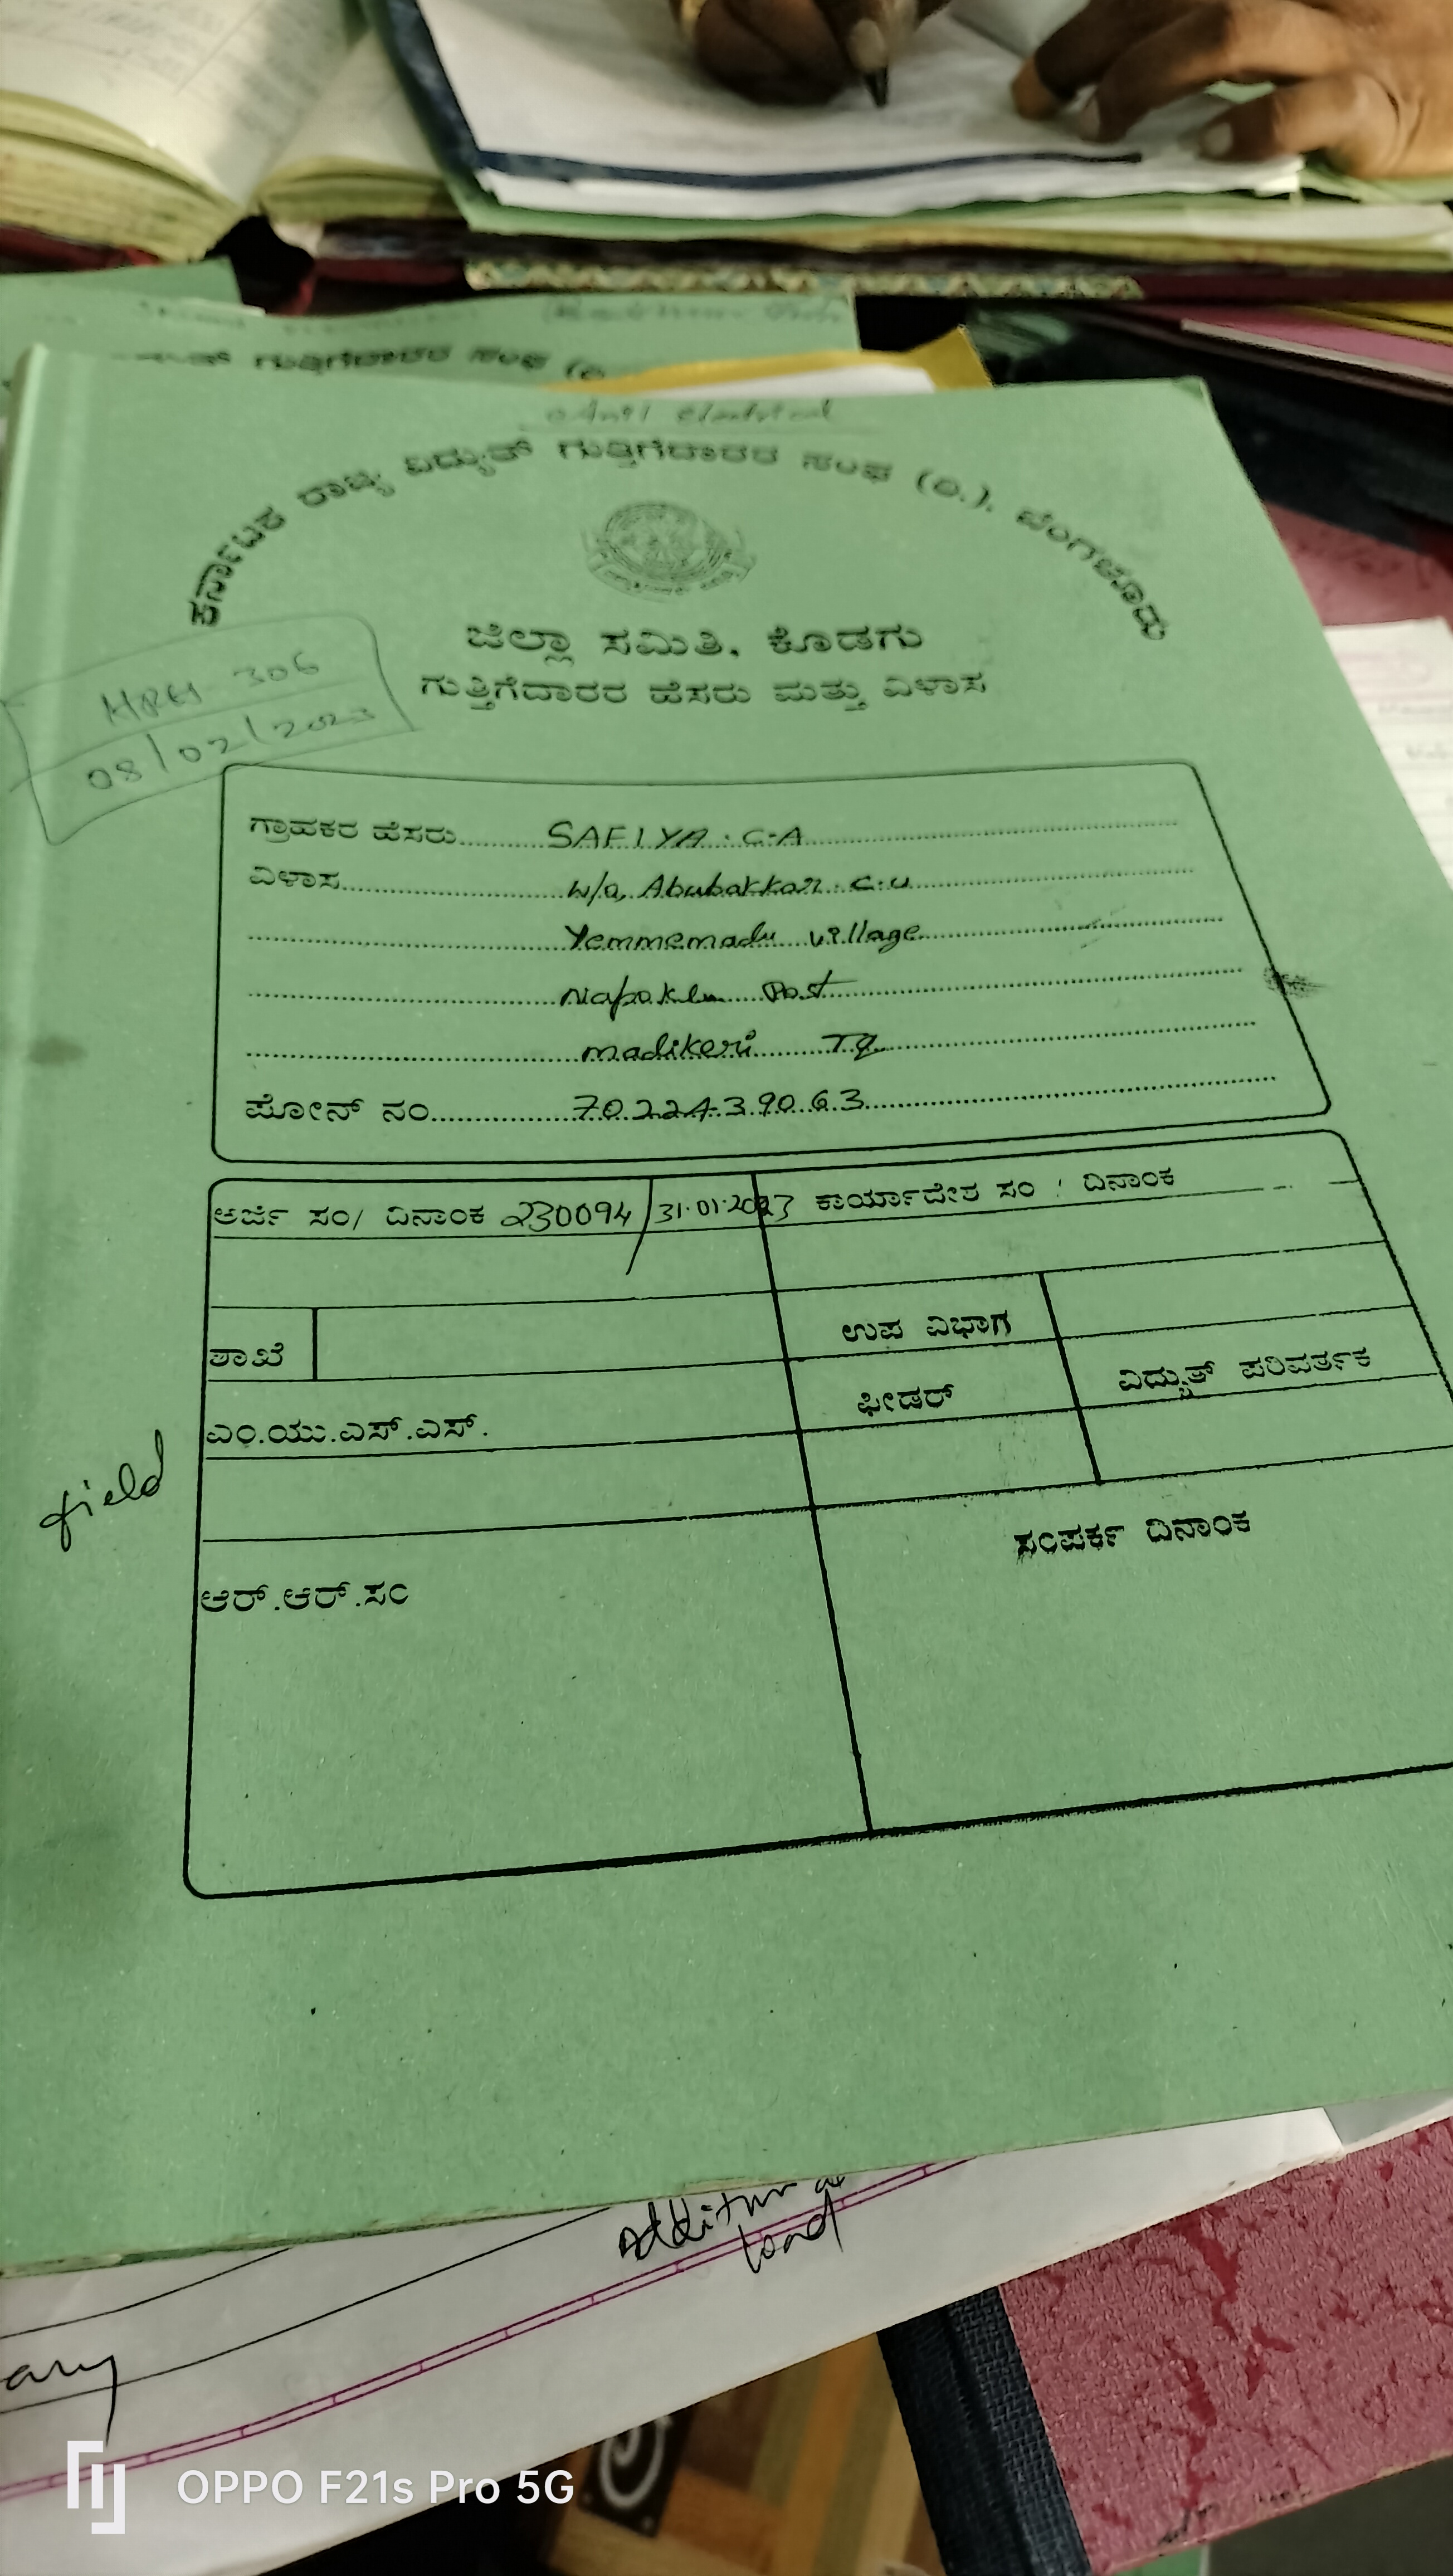 ಗುತ್ತಿಗೆದಾರರ ಸಂಘ
ಕರ್ನಾಟಕ ರಾಜ್ಯ ವಿದ್ಯುತ್ ಗುತ್ತಿಗೆದಾರರ ಸಂಘ (ರಿ.). ಬೆಂಗಳೂರು
ಜಿಲ್ಲಾ ಸಮಿತಿ, ಕೊಡಗು
ಗುತ್ತಿಗೆದಾರರ ಹೆಸರು ಮತ್ತು ವಿಳಾಸ
306
08/02/2023
ಗ್ರಾಹಕರ ಹೆಸರು SAFIYA. C-A
ವಿಳಾಸ W/o, Abubakkar. C.U
Yemmemadu village
Napoklu Post
madikeri Tq
ಫೋನ್ ನಂ 7022439063
ಅರ್ಜಿ ಸಂ/ ದಿನಾಂಕ 230094/31.01.2023 ಕಾರ್ಯಾದೇಶ ಸಂ / ದಿನಾಂಕ
ಶಾಖೆ ಉಪ ವಿಭಾಗ
ಎಂ.ಯು.ಎಸ್.ಎಸ್. ಫೀಡರ್ ವಿದ್ಯುತ್ ಪರಿವರ್ತಕ
field
ಆರ್.ಆರ್.ಸಂ ಸಂಪರ್ಕ ದಿನಾಂಕ
load
OPPO F21s Pro 5G